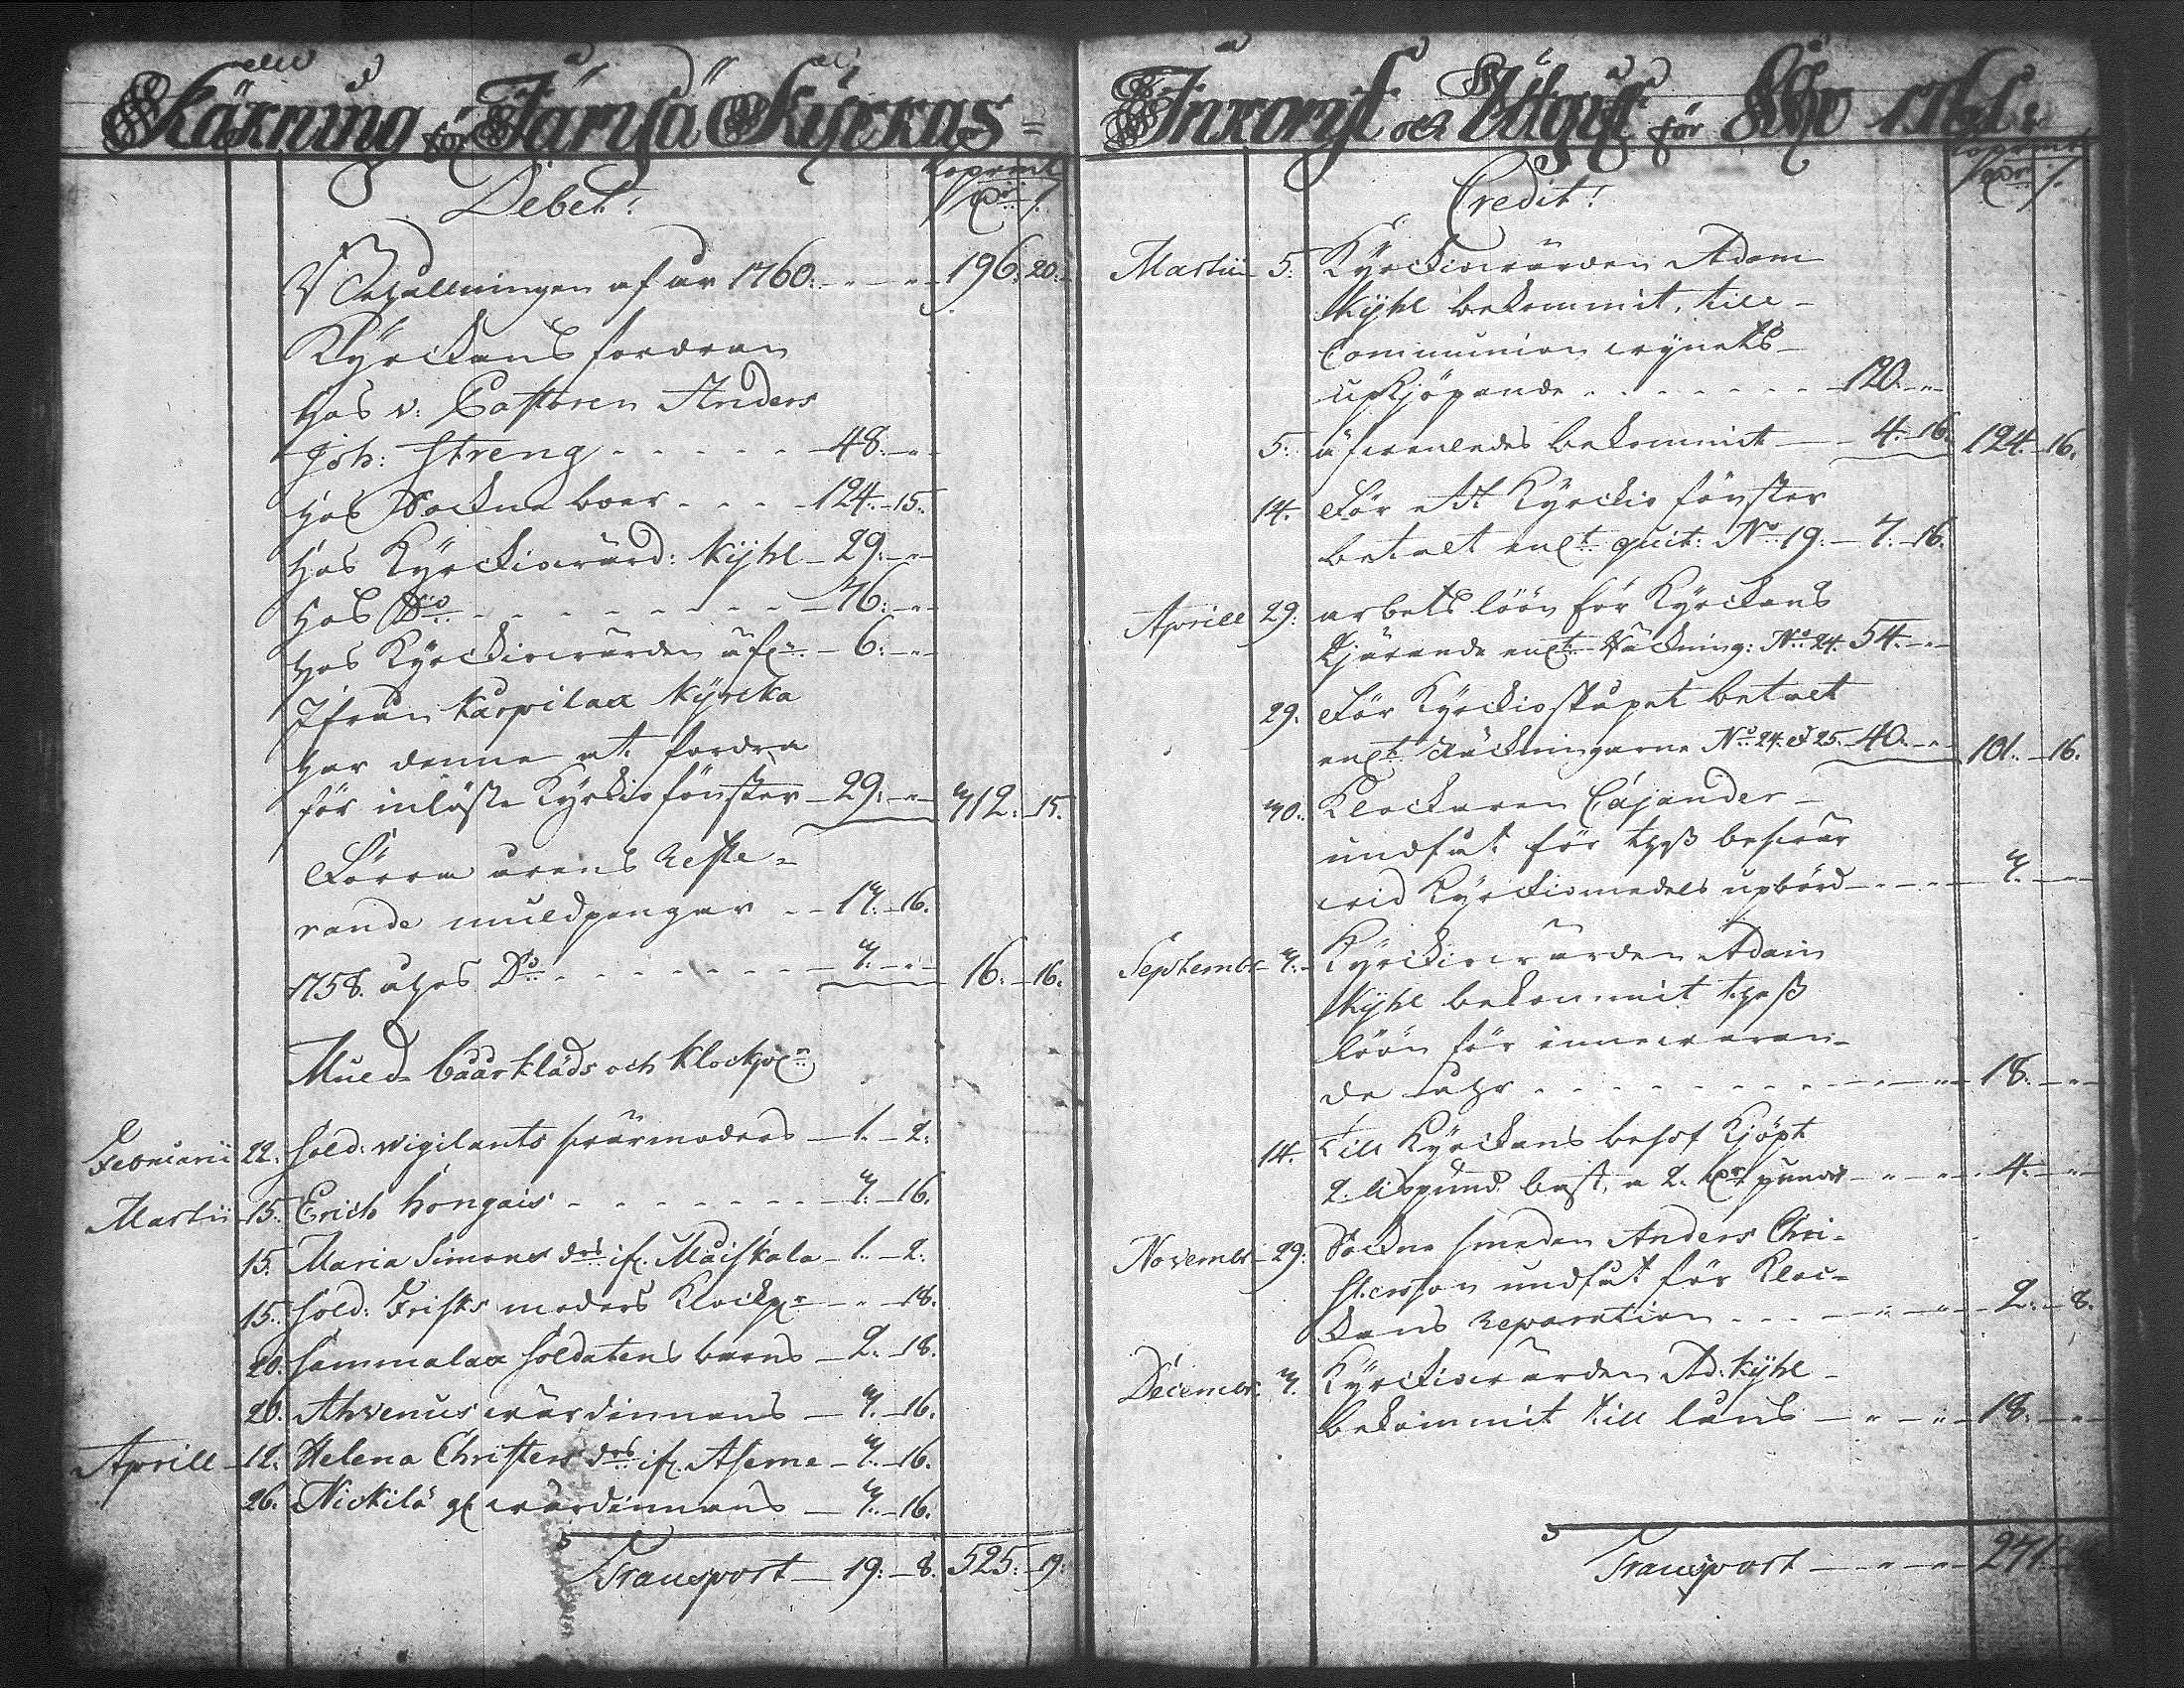 Räkning för Jämsä Kyrkas
Debet:
Kopparmt
Dlr
Behållningen af år 1760. 196: 20:
Kyrckans fordran
hos v: Pastoren Anders
Joh: Streng 48:
hos Sockneboer 124. 15.
hos Kyrckiowärd: Kyhl 29:
hos Do 76:
hos Kyrckiowärden 6:
Ifrån Karpilax Kyrcka
har denne at fordra
för inlöste Kyrckiofönster 29: 312: 15.
Förra årens Reste-
rande muldpengar 13. 16.
1758. åhrs Do 3. 16. 16.
Muld Båårkläds och Klockp:r
Februarii 22. Sold: Wigilants swärmoders 1. 2.
Martii 15. Erich Hongais 3. 16.
15. Maria Simons drs if. Maiskala 1. 2.
15. Sold: Frisks moders Klockp:r 18.
20. Sammalax Soldatens barns 2. 18.
20. Ahvenus wärdinnans 3. 16.
Aprill 12. Helena Christers drs if. Aseme 3. 16.
26. Nickilä gl wärdinnans 3. 16.
Transport 19. 8. 525. 19.
Inkomst och Utgift för Åhr 1761.
Kopparmt
Dlr
Credit:
Martii 5. Kyrckiowärden Adam
Kyhl bekommit, till
Communion wynets
upkjöpande 120.
5. äfwenledes bekommit 4. 16. 124. 16.
14. För ett Kyrckio fönster
betalt enl:t quit: No 19. 7. 16.
Aprill 29. arbets löön för Kyrckans
tjärande enl:t Räckning: No 24. 54.
29. För Kyrckioskåpet betalt
enl:t Räckningarne No 24. & 25. 40. 101. 16.
30. Klockaren Cajander
undfåt för thess beswär
wid Kyrckiomedels upbörd 3.
September 3. Kyrckiowärden Adam
Kyhl bekommit thess
löön för innewaran-
de åhr 18.
14. till Kyrckans behof Kjöpt
2. Lispund bast, a 2. Dlr pundt 4.
November 29. Sockne smeden Anders Chri-
stersson undfåt för Kloc-
kans Reparation 2. 8.
December 3. Kyrckiowärden Ad: Kyhl
bekommit till låns 18.
Transport 271.